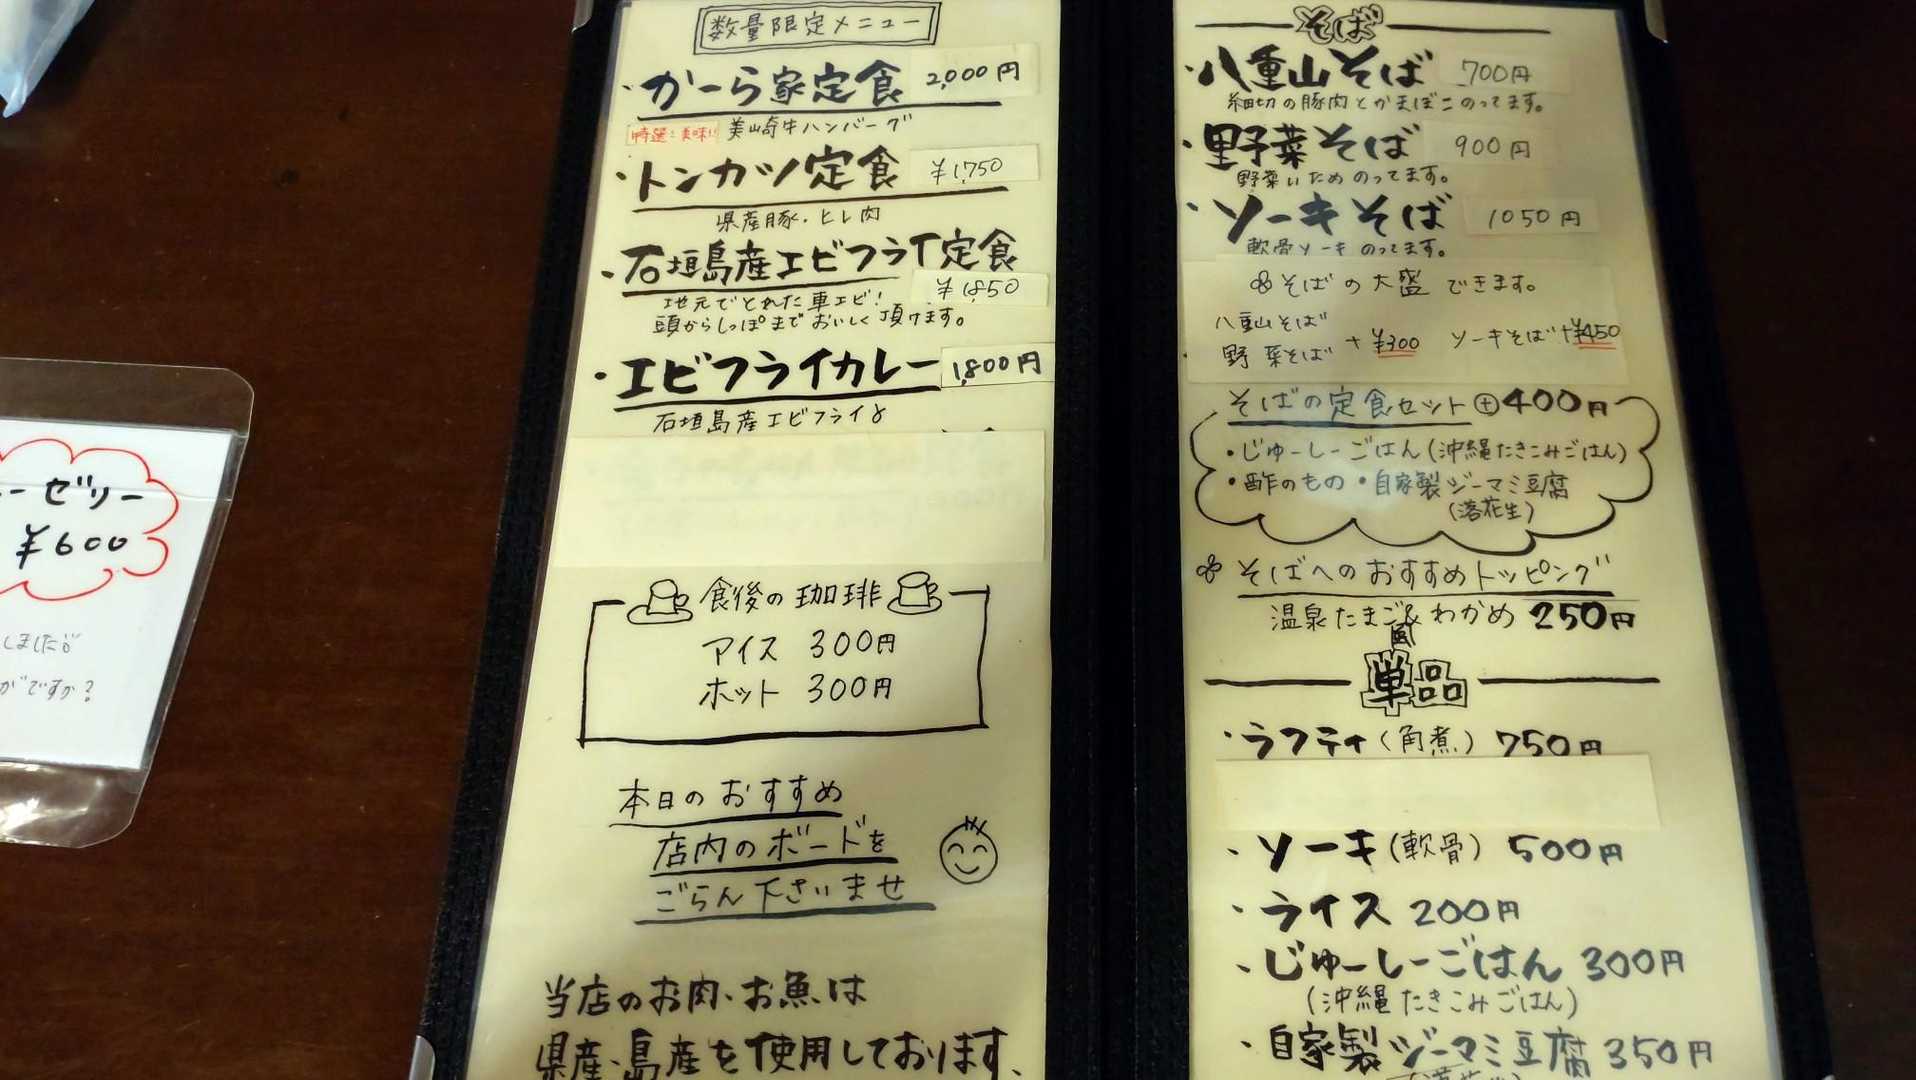 数量限定メニュー
・かーら家定食 2,000円
特選!美味!! 美崎牛ハンバーグ
・トンカツ定食 ¥1,750
県産豚・ヒレ肉
・石垣島産エビフライ定食
¥1,850
地元でとれた車エビ!
頭からしっぽまでおいしく頂けます。
・エビフライカレー 1,800円
石垣島産エビフライと
食後の珈琲
アイス 300円
ホット 300円
本日のおすすめ
店内のボードを
ごらん下さいませ
当店のお肉、お魚は
県産、島産を使用しております、
そば
・八重山そば 700円
細切の豚肉とかまぼこのってます。
・野菜そば 900円
野菜いためのってます。
・ソーキそば 1050円
軟骨ソーキのってます。
そばの大盛できます。
八重山そば
野菜そば +¥300 ソーキそば+¥450
そばの定食セット⊕400円
・じゅーしーごはん(沖縄たきこみごはん)
・酢のもの・自家製ジーマミ豆腐
(落花生)
そばへのおすすめトッピング
温泉たまご風&わかめ 250円
単品
・ラフティ(角煮) 750円
・ソーキ(軟骨) 500円
・ライス 200円
・じゅーしーごはん 300円
(沖縄たきこみごはん)
・自家製ジーマミ豆腐 350円
ーゼリー
¥600
しました
がですか?